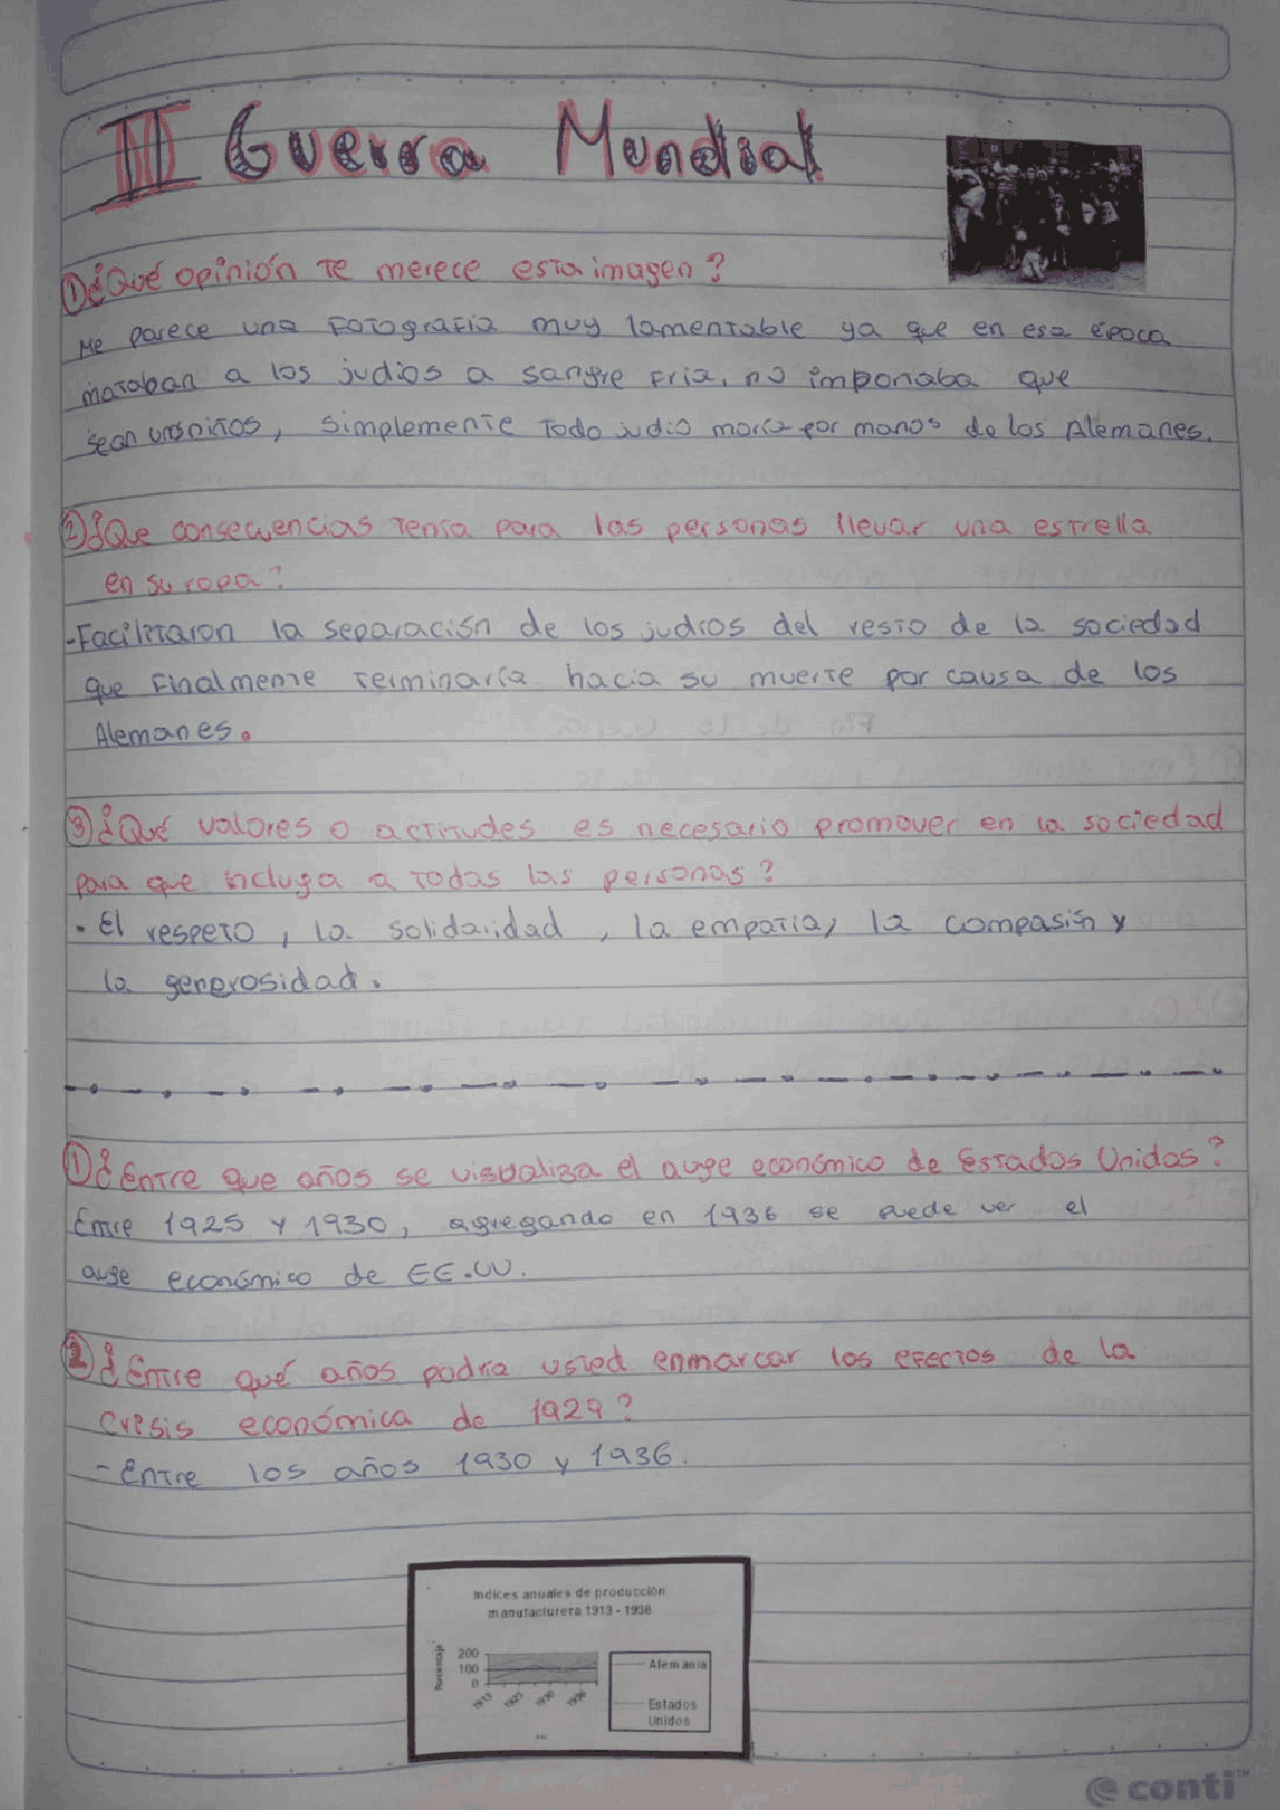 II Guerra Mundial
① ¿Qué opinión te merece esta imagen?
Me parece una fotografía muy lamentable ya que en esa época
mataban a los judios a sangre fria, no importaba que
sean unos niños, simplemente todo judio moría por manos de los Alemanes.
② ¿Que consecuencias tenía para las personas llevar una estrella
en su ropa?
-Facilitaron la separación de los judios del resto de la sociedad
que finalmente terminaría hacia su muerte por causa de los
Alemanes.
③ ¿Qué valores o actitudes es necesario promover en la sociedad
para que incluya a todas las personas?
- El respeto, la solidaridad, la empatia, la compasión y
la generosidad.
① ¿Entre que años se visualiza el auge económico de Estados Unidos?
Entre 1925 y 1930, agregando en 1936 se puede ver el
auge económico de EE.UU.
② ¿Entre qué años podria usted enmarcar los efectos de la
crisis económica de 1929?
- Entre los años 1930 y 1936.
Indices anuales de producción
manufacturera 1913 - 1938
Porcentaje
200
100
0
1913 1925 1930 1936
Alemania
Estados
Unidos
conti™